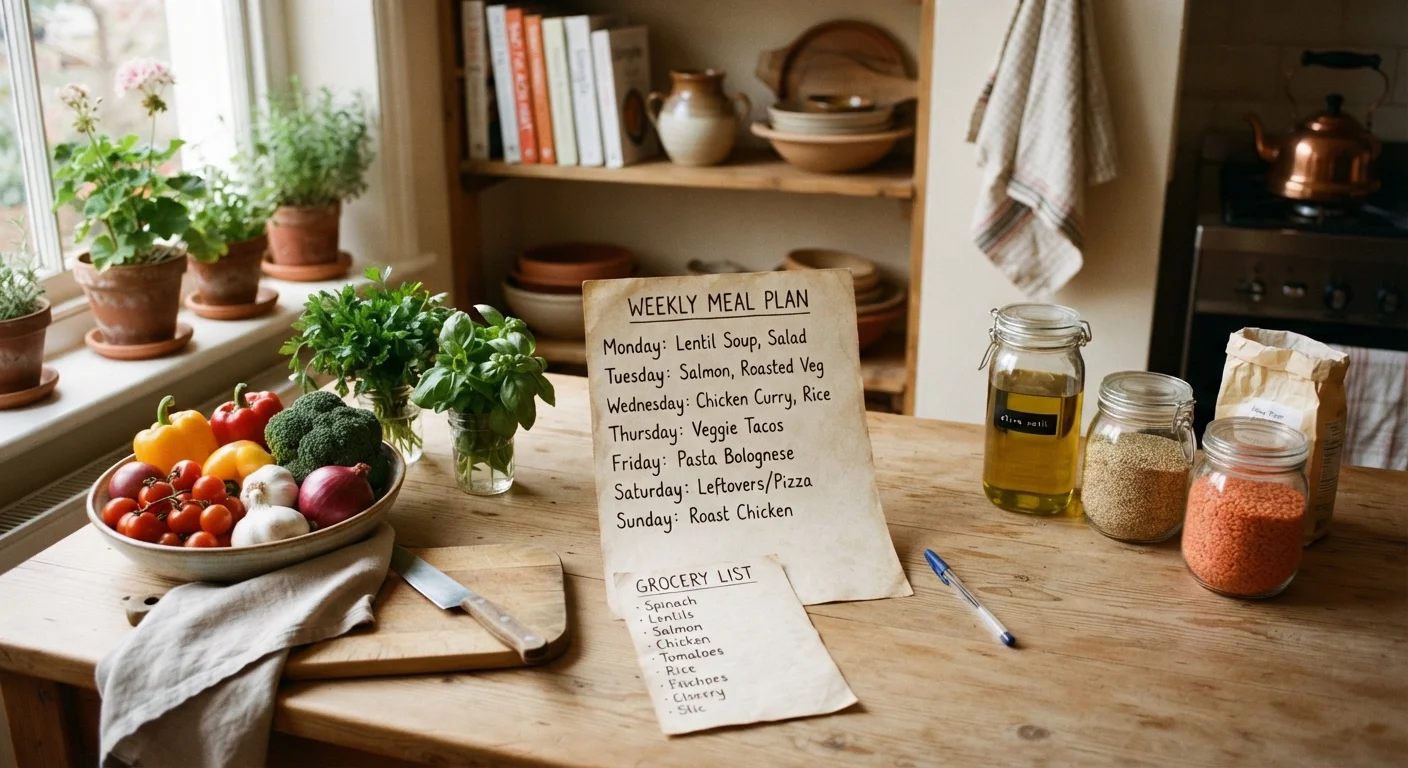 WEEKLY MEAL PLAN
Monday: Lentil Soup, Salad
Tuesday: Salmon, Roasted Veg
Wednesday: Chicken Curry, Rice
Thursday: Veggie Tacos
Friday: Pasta Bolognese
Saturday: Leftovers/Pizza
Sunday: Roast Chicken
GROCERY LIST
· Spinach
· Lentils
· Salmon
· Chicken
· Tomatoes
· Rice